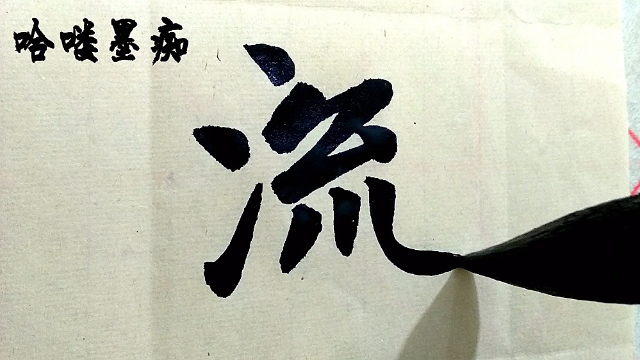 哈喽墨痴
流